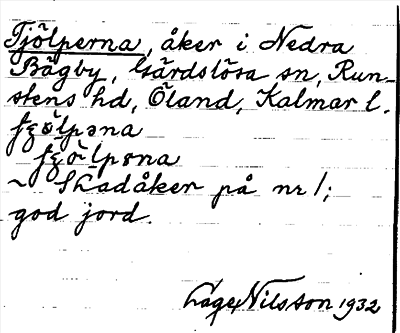 Tjölperna, åker i Nedra
Bägby, Gärdslösa sn, Run-
stens hd, Öland, Kalmar l.
~ Skadåker på nr 1;
god jord.
Lage Nilsson 1932